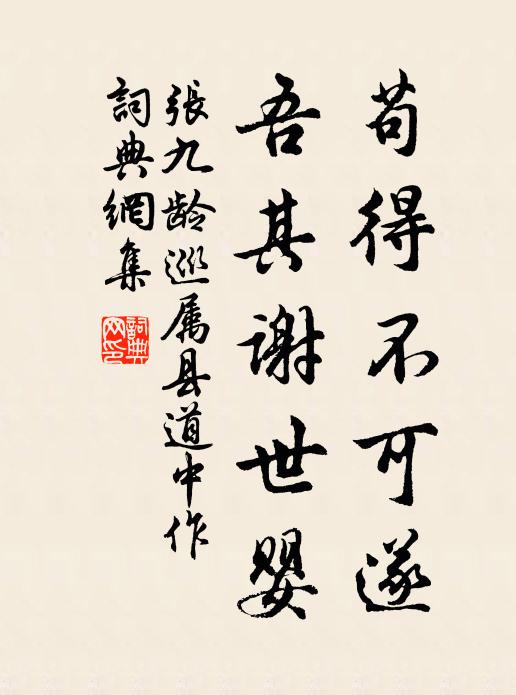 苟得不可遂
吾其謝世嬰
張九龄巡属县道中作
詞典網集
詞典网印